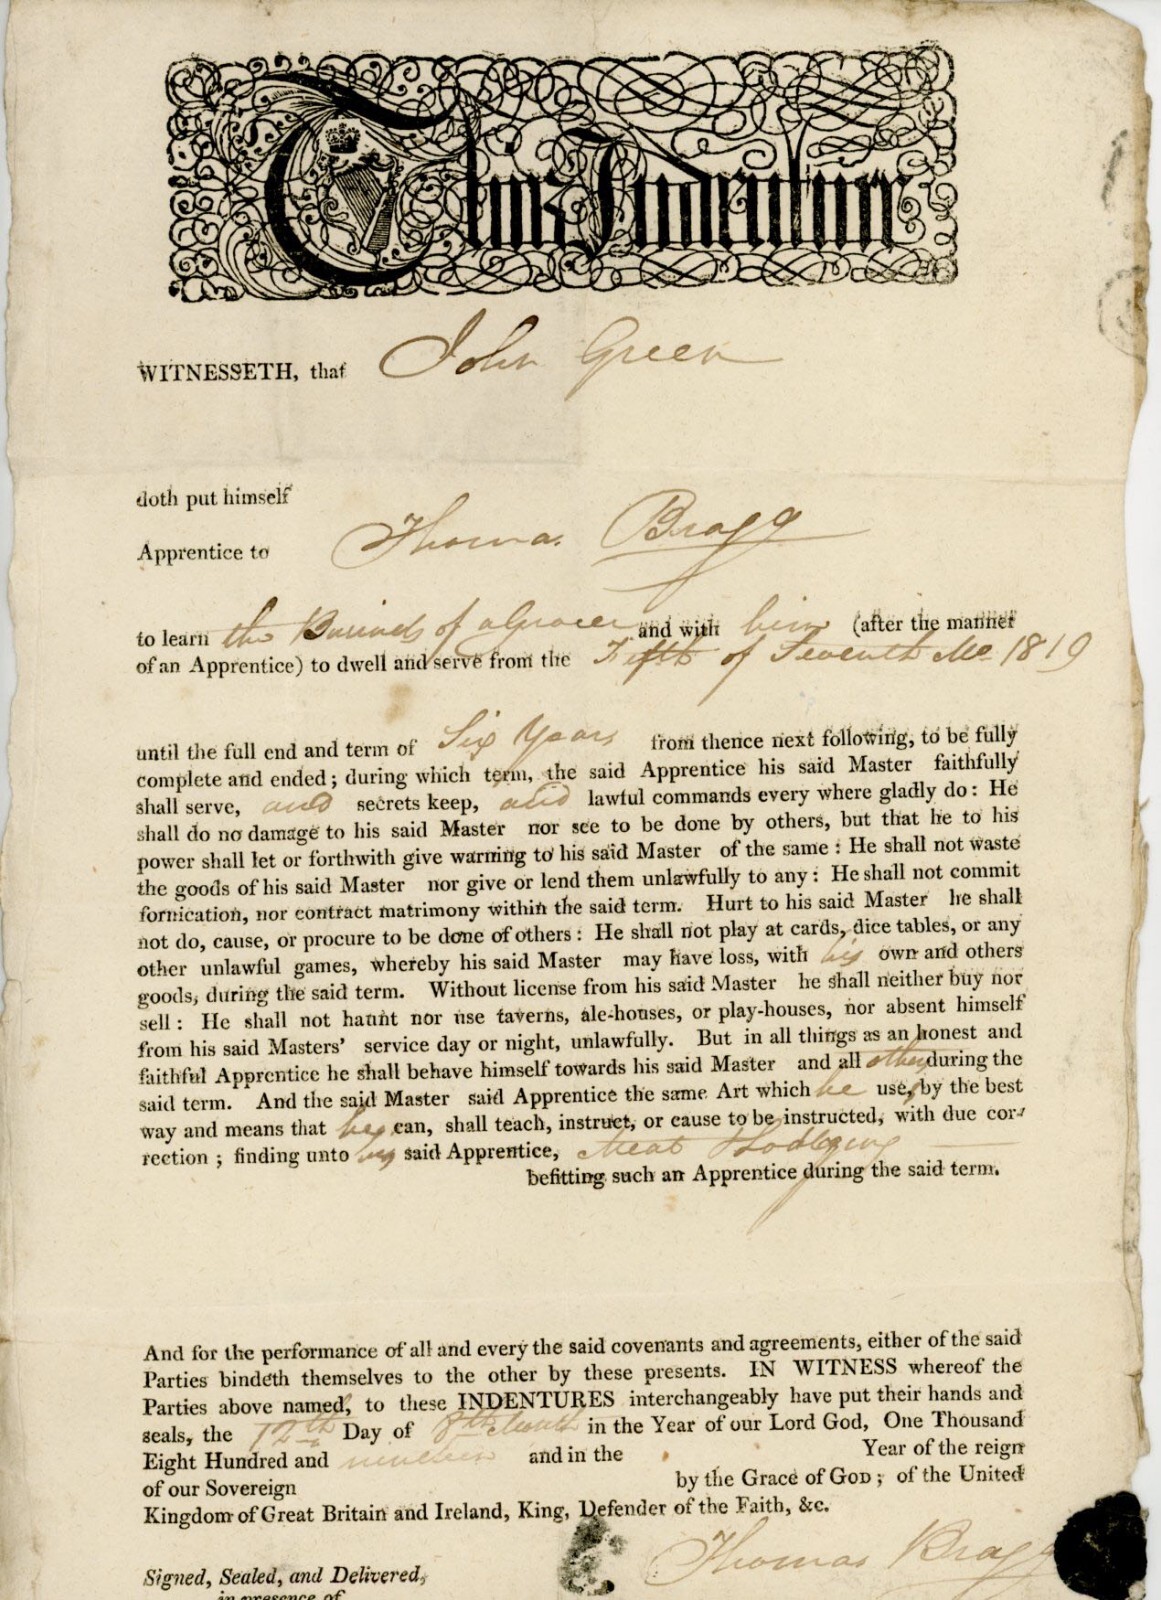 This Indenture
WITNESSETH, that John Green
doth put himself
Apprentice to Thomas Bragg
to learn the Business of a Grocer and with him (after the manner
of an Apprentice) to dwell and serve from the Fifth of Seventh Mo 1819
until the full end and term of Six Years from thence next following, to be fully
complete and ended; during which term, the said Apprentice his said Master faithfully
shall serve, and secrets keep, and lawful commands every where gladly do: He
shall do no damage to his said Master nor see to be done by others, but that he to his
power shall let or forthwith give warning to his said Master of the same: He shall not waste
the goods of his said Master nor give or lend them unlawfully to any: He shall not commit
fornication, nor contract matrimony within the said term. Hurt to his said Master he shall
not do, cause, or procure to be done of others: He shall not play at cards, dice tables, or any
other unlawful games, whereby his said Master may have loss, with his own and others
goods, during the said term. Without license from his said Master he shall neither buy nor
sell: He shall not haunt nor use taverns, ale-houses, or play-houses, nor absent himself
from his said Masters' service day or night, unlawfully. But in all things as an honest and
faithful Apprentice he shall behave himself towards his said Master and all others during the
said term. And the said Master said Apprentice the same Art which he uses, by the best
way and means that he can, shall teach, instruct, or cause to be instructed, with due cor-
rection; finding unto his said Apprentice, Meat & Lodging
befitting such an Apprentice during the said term.
And for the performance of all and every the said covenants and agreements, either of the said
Parties bindeth themselves to the other by these presents. IN WITNESS whereof the
Parties above named, to these INDENTURES interchangeably have put their hands and
seals, the 12th Day of 8th Month in the Year of our Lord God, One Thousand
Eight Hundred and nineteen and in the Year of the reign
of our Sovereign by the Grace of GOD; of the United
Kingdom of Great Britain and Ireland, King, Defender of the Faith, &c.
Thomas Bragg
Signed, Sealed, and Delivered,
in presence of